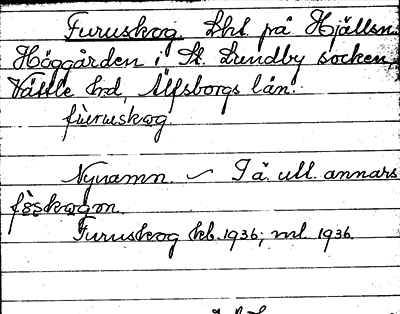 Furuskog. Lht på Hjällsn.
Höggården i St. Lundby socken,
Vättle hd, Älfsborgs län.
fùruskog.
Nynamn. – I ä. utt. annars
fòskogon.
Furuskog kb. 1936; ml. 1936.